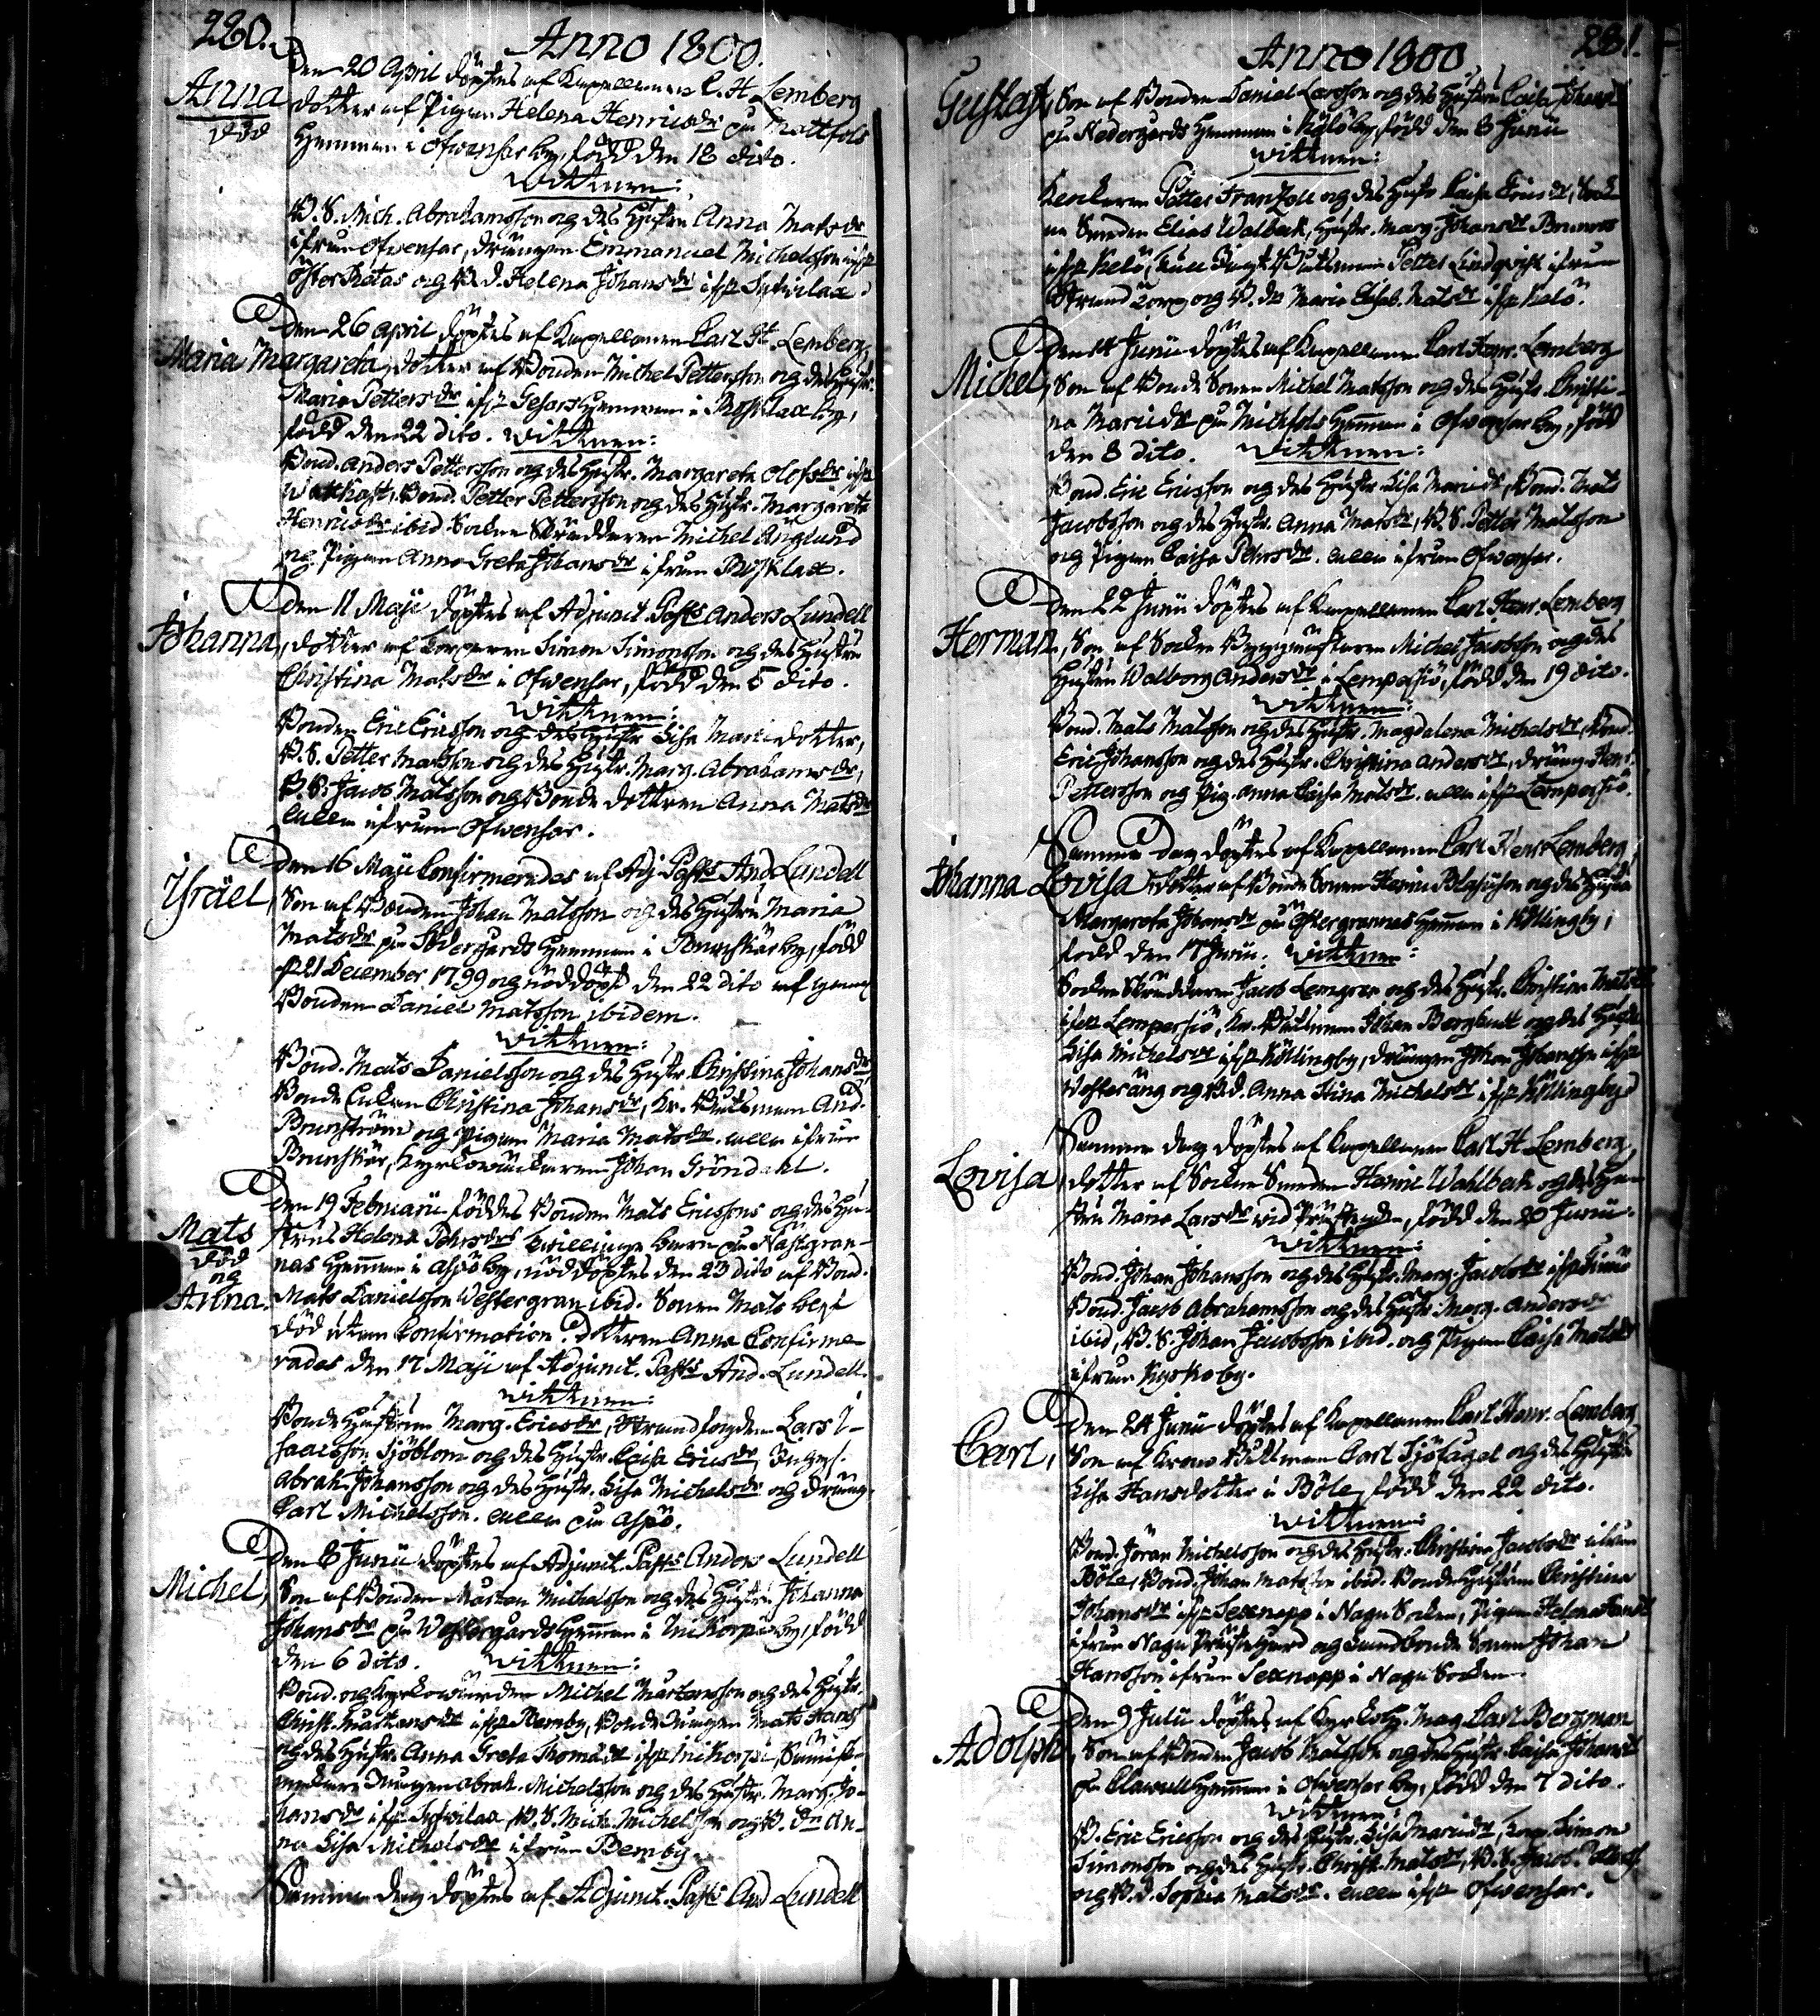 220.
Anno 1800.
Den 20 April döptes af Kapellanen C. H. Lemberg
Anna
död
dotter af Pigan Helena Henricsdr på Mattfols
Hemman i Ofvensar by, född den 18 dito.
Wittnen:
B. S. Mich. Abrahamsson og des Hustru Anna Matsdr
ifrån Ofvensar, drängen Emmanuel Michelsson ifr
Öster Retas og B. d. Helena Johansdr ifr Sutvilax.
Den 26 April döptes af Kapellanen Carl H. Lemberg,
Maria Margareta, dotter af Bonden Michel Pettersson og des Hustr.
Maria Pettersdr ifr Gesars Hemman i Rosklax by,
född den 22 dito. Wittnen:
Bond. Anders Pettersson og des Hustr. Margareta Olofsdr ifr
Wattkast, Bond. Petter Pettersson og des Hustr. Margareta
Henricsdr ibid. Sockne Skräddaren Michel Änglund
og Pigan Anna Greta Johansdr ifrån Rosklax.
Den 11 Maji döptes af Adjunct. Past: Anders Lundell
Johanna, dotter af Torparen Simon Simonsson og des Hustru
Christina Matsdr i Ofvensar, född den 5 dito.
Wittnen:
Bonden Eric Ericsson og des Hustr Lisa Maria dotter,
B. S. Petter Matsson og des Hustr. Marg. Abrahamsdr,
B. S. Jacob Matsson og Bonde dottren Anna Matsdr
alla ifrån Ofvensar.
Den 16 Maji Confirmerades af Adj. Past: And Lundell
Israel, Son af Bonden Johan Matsson og des Hustru Maria
Matsdr på Södergårds Hemman i Brunskär by, född
d 21 December 1799 og nöddöpt den 22 dito af
Bonden Daniel Matsson ibidem.
Wittnen:
Bond. Mats Danielsson og des Hustr. Christina Johansdr
Bonde Enkan Christina Johansdr, Kr. Båtsman And.
Brunström og Pigan Maria Matsdr. alla ifrån
Brunskär, Kyrkowäktaren Johan Gröndahl.
Den 19 Februarii föddes Bonden Mats Ericssons og des Hu-
Mats
död
og
Anna.
strus Helena Pehrsdrs twillinge barn på Nästgran-
nas Hemman i Aspö by, nöddöptes den 23 dito af Bond.
Mats Danielsson Westergran ibid. Sonen Mats blef
död utan Confirmation. dottren Anna Confirme-
rades den 17 Maji af Adjunct. Past: And. Lundell.
Wittnen:
Bonde Hustrun Marg. Ericsdr, Strandfogden Lars I-
saacsson Sjöblom og des Hustr. Caisa Ericsdr, Inhys.
Abrah. Johansson og des Hustr. Lisa Michelsdr og dräng.
Carl Michelsson. alla på Aspö.
Den 8 Junii döptes af Adjunct. Past: Anders Lundell
Michel, Son af Bonden Mårten Michelsson og des Hustru Johanna
Johansdr på Westergårds Hemman i Inikorpö by, född
den 6 dito. Wittnen:
Bond. og Kyrkowärden Michel Mårtensson og des Hustr.
Christ. Mårtensdr ifr Bemby, Bonde Mågen Mats Hans:
og des Hustr. Anna Greta Thomædr ifr Inikorpö
Mågen Abrah. Michelsson og des Hustr. Marg. Jo-
hansdr ifr Sutvilax, B. S. Mich. Michelsson og B. dr An-
na Lisa Michelsdr ifrån Bemby.
Samma dag döptes af Adjunct. Past: And Lundell
221.
Anno 1800
Gustaf, Son af Bonden Daniel Larsson og des Hustru Caisa Johansdr
på Nedergårds Hemman i Kälö by, född den 8 Junii
Wittnen:
Länkaren Petter Franzell og des Hustr Caisa Ericsdr, Sock-
ne Smeden Elias Walbeck, Hustr. Marg. Johansdr Brunros
ifr Kelö, Båtsman Petter Lindqvist ifrån
Strand Torp og B. dr Maria Elisab. Matsdr ifr Kelö.
Den 14 Junii döptes af Kapellanen Carl Henr. Lemberg
Michel, Son af Bonde Sonen Michel Matsson og des Hustr. Christi-
na Mariedr på Michfols Hemman i Ofvensar by, född
den 8 dito. Wittnen:
Bond. Eric Ericsson og des Hustr Lisa Mariedr, Bond. Mats
Jacobsson og des Hustr. Anna Matsdr, B. S. Petter Matsson
og Pigan Caisa Pehrsdr. alla ifrån Ofvensar.
Den 22 Junii döptes af Kapellanen Carl Henr. Lemberg
Herman, Son af Sockne Byggmästaren Michel Jacobsson og des
Hustru Walborg Andersdr i Lempersiö, född den 19 dito.
Wittnen:
Bond. Mats Matsson og des Hustr. Magdalena Michelsdr, Bond.
Eric Johansson og des Hustr. Christina Andersdr, dräng. Henr.
Pettersson og Pig. Anna Caisa Matsdr. alla ifr Lempersiö.
Samma Dag döptes af Kapellanen Carl Henr Lemberg
Johanna Lovisa, dotter af Bonde Sonen Henric Blasiusson og des Hustru
Margareta Johansdr på Östergrannas Hemman i Kittlingby,
född den 17 Junii. Wittnen:
Sockne Skräddaren Jacob Lemgren og des Hustr. Christina Matsdr
ifrån Lempersiö, Kr. Båtsman Johan Bergbult og des Hustr
Lisa Michelsdr ifr Kittlingby, drängen Johan Johansson ifr
Westeräng og B. d. Anna Stina Michelsdr ifr Kittlingby.
Samma dag döptes af Kapellanen Carl H. Lemberg
Lovisa, dotter af Sockne Smeden Henric Wahlbeck og des Hu-
stru Maria Larsdr wid Prästgården, född den 20 Junii.
Wittnen:
Bond. Johan Johansson og des Hustr. Marg. Jacobsdr ifr
Bond. Jacob Abrahamsson og des Hustr. Marg. Andersdr
ibid, B. S. Johan Jacobsson ibid. og Pigan Caisa Matsdr
ifrån Kyrkoby.
Den 24 Junii döptes af Kapellanen Carl Henr. Lemberg
Carl, Son af Krono Båtsman Carl Sjöfågel og des Hustru
Lisa Hansdotter i Böle, född den 22 dito.
Wittnen:
Bond. Jöran Michelsson og des Hustr. Christina Jacobsdr ifrån
Böle, Bond. Johan Matsson ibid. Bonde Hustrun Christina
Johansdr ifr Sexnapp i Nagu Socken, Pigan Helena
ifrån Nagu Prästegård og Bonde Sonen Johan
Hansson ifrån Sexnapp i Nagu Socken.
Den 9 Julii döptes af Kyrkoh. Mag. Carl Bergman
Adolph, Son af Bonden Jacob Matsson og des Hustr. Caisa Johansdr
på Clawull Hemman i Ofvensar by, född den 7 dito.
Wittnen:
B. Eric Ericsson og des Hustr. Lisa Mariedr, Torp. Simon
Simonsson og des Hustr. Christ. Matsdr, B. S. Jacob
og B. d. Sophia Matsdr. alla ifr Ofvensar.